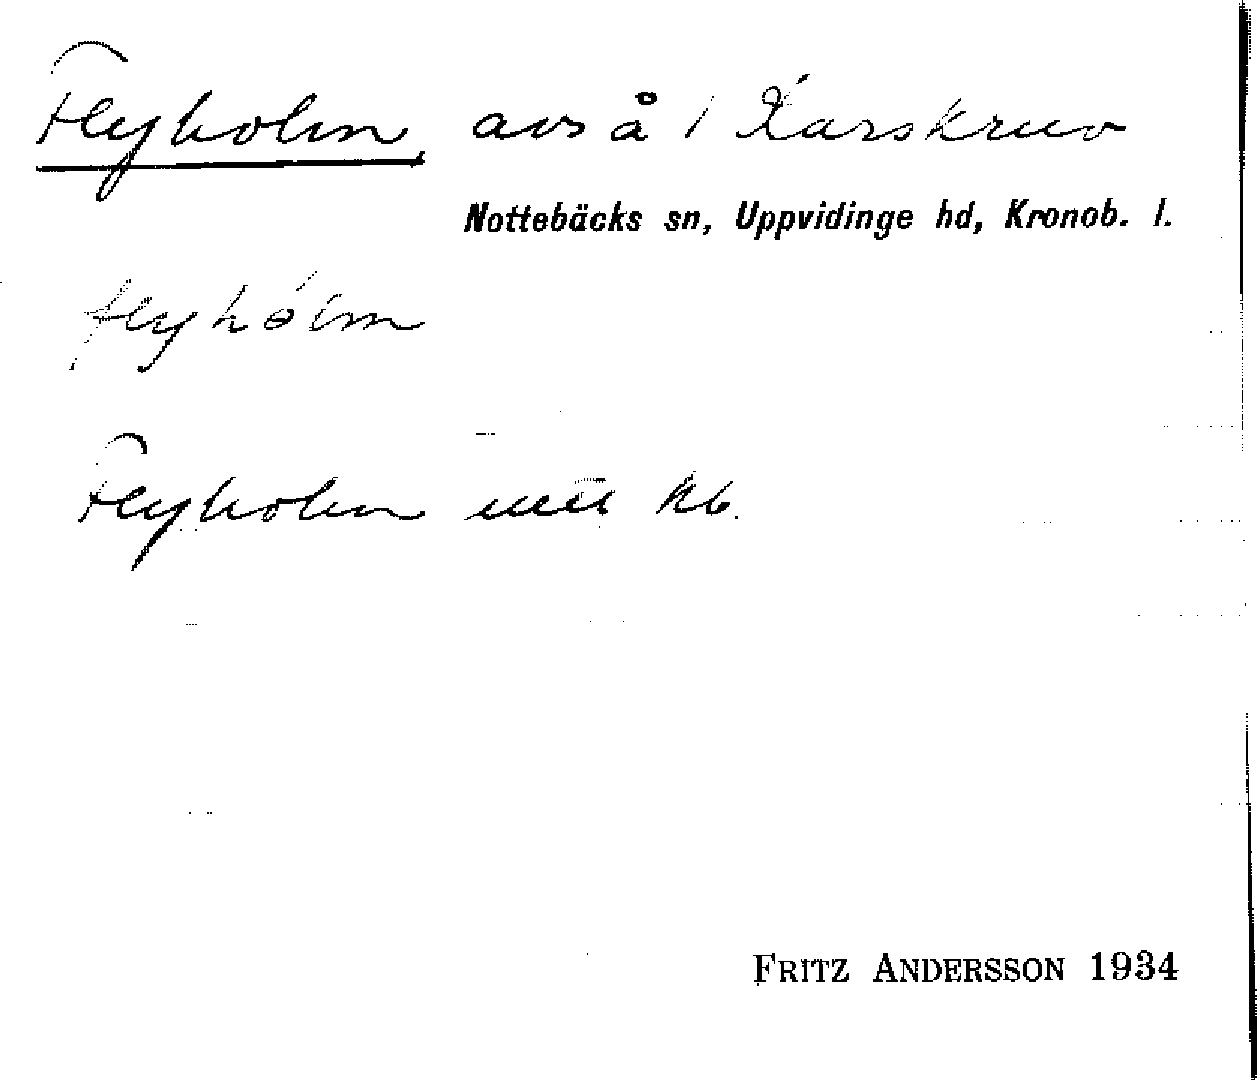 Flyholm, avs å 1 Karskruv
Nottebäcks sn, Uppvidinge hd, Kronob. l.
flyhólm
Flyholm
FRITZ ANDERSSON 1934